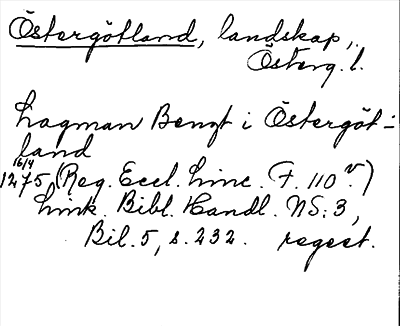 Östergötland, landskap,
Österg. l.
Lagman Bengt i Östergöt-
land
16/4
1275 (Reg. Eccl. Linc. F. 110 v.)
Link. Bibl. Handl. NS: 3,
Bil. 5, s. 232. regest.